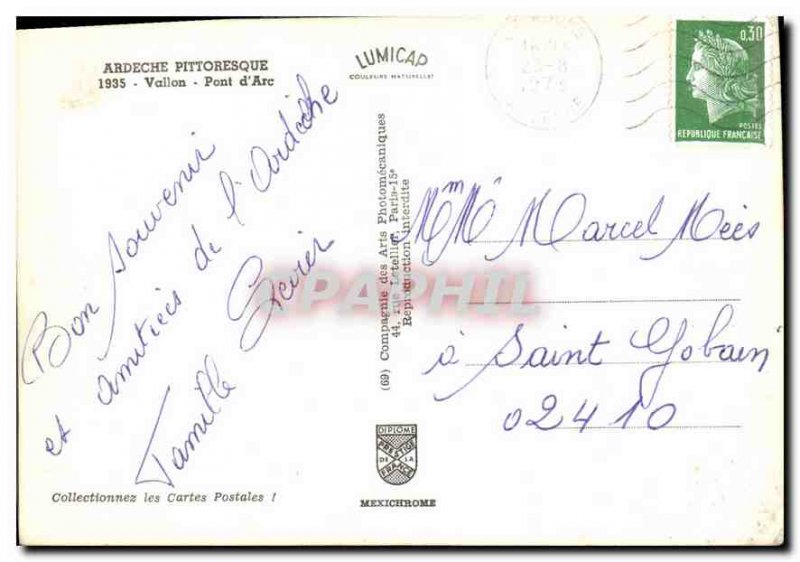 ARDECHE PITTORESQUE
1935 - Vallon - Pont d'Arc
LUMICAP
COULEURS NATURELLES
0,30
POSTES
REPUBLIQUE FRANÇAISE
Bon souvenir
et amitiés de l'Ardèche
Famille
(69) Compagnie des Arts Photomécaniques
44, rue Letellier, Paris-15e
Reproduction interdite
CPAPHIL
Mme Mr Marcel Mées
à Saint Gobain
02410
DIPLOME
PRESTIGE
DE LA
FRANCE
MEXICHROME
Collectionnez les Cartes Postales !